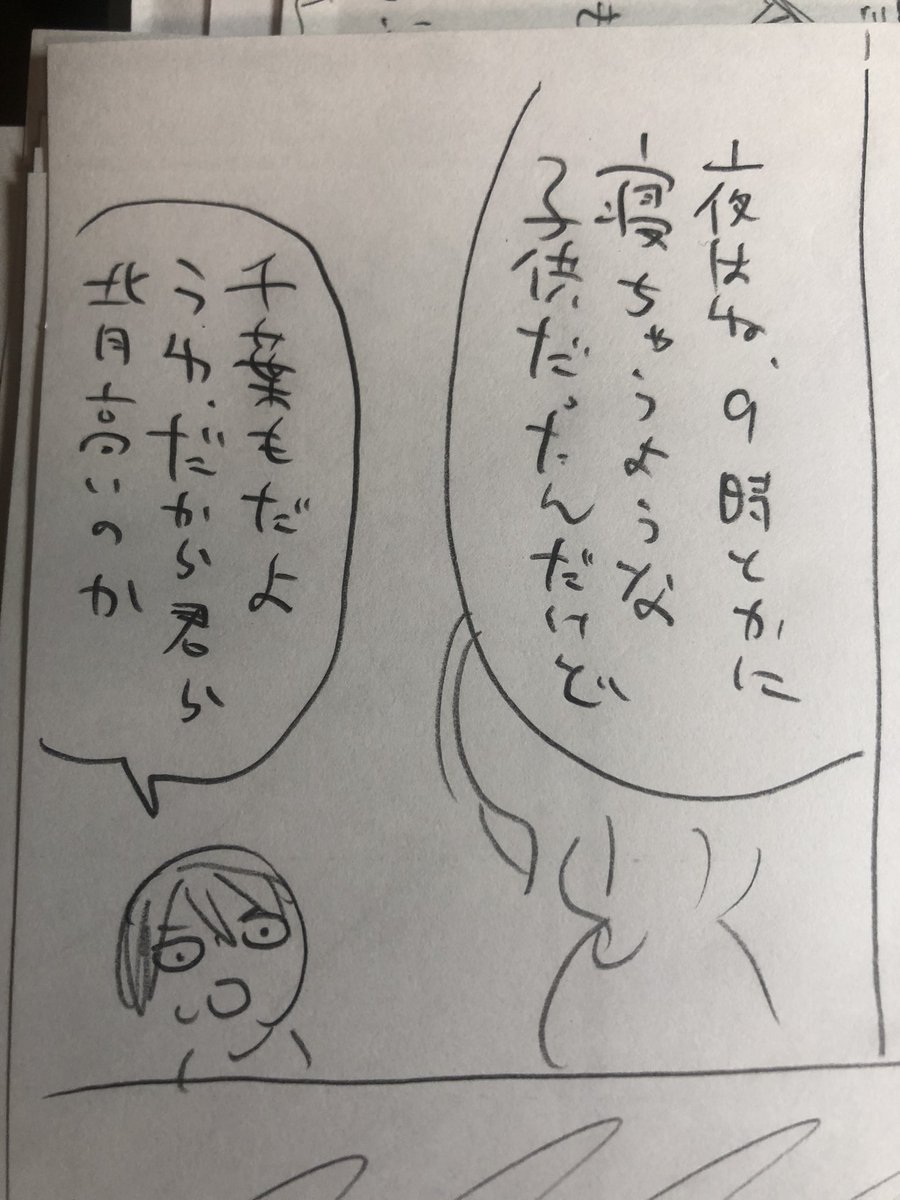 夜はね、9時とかに
寝ちゃうような
子供だったんだけど
千葉もだよ
うわ、だから君ら
背高いのか